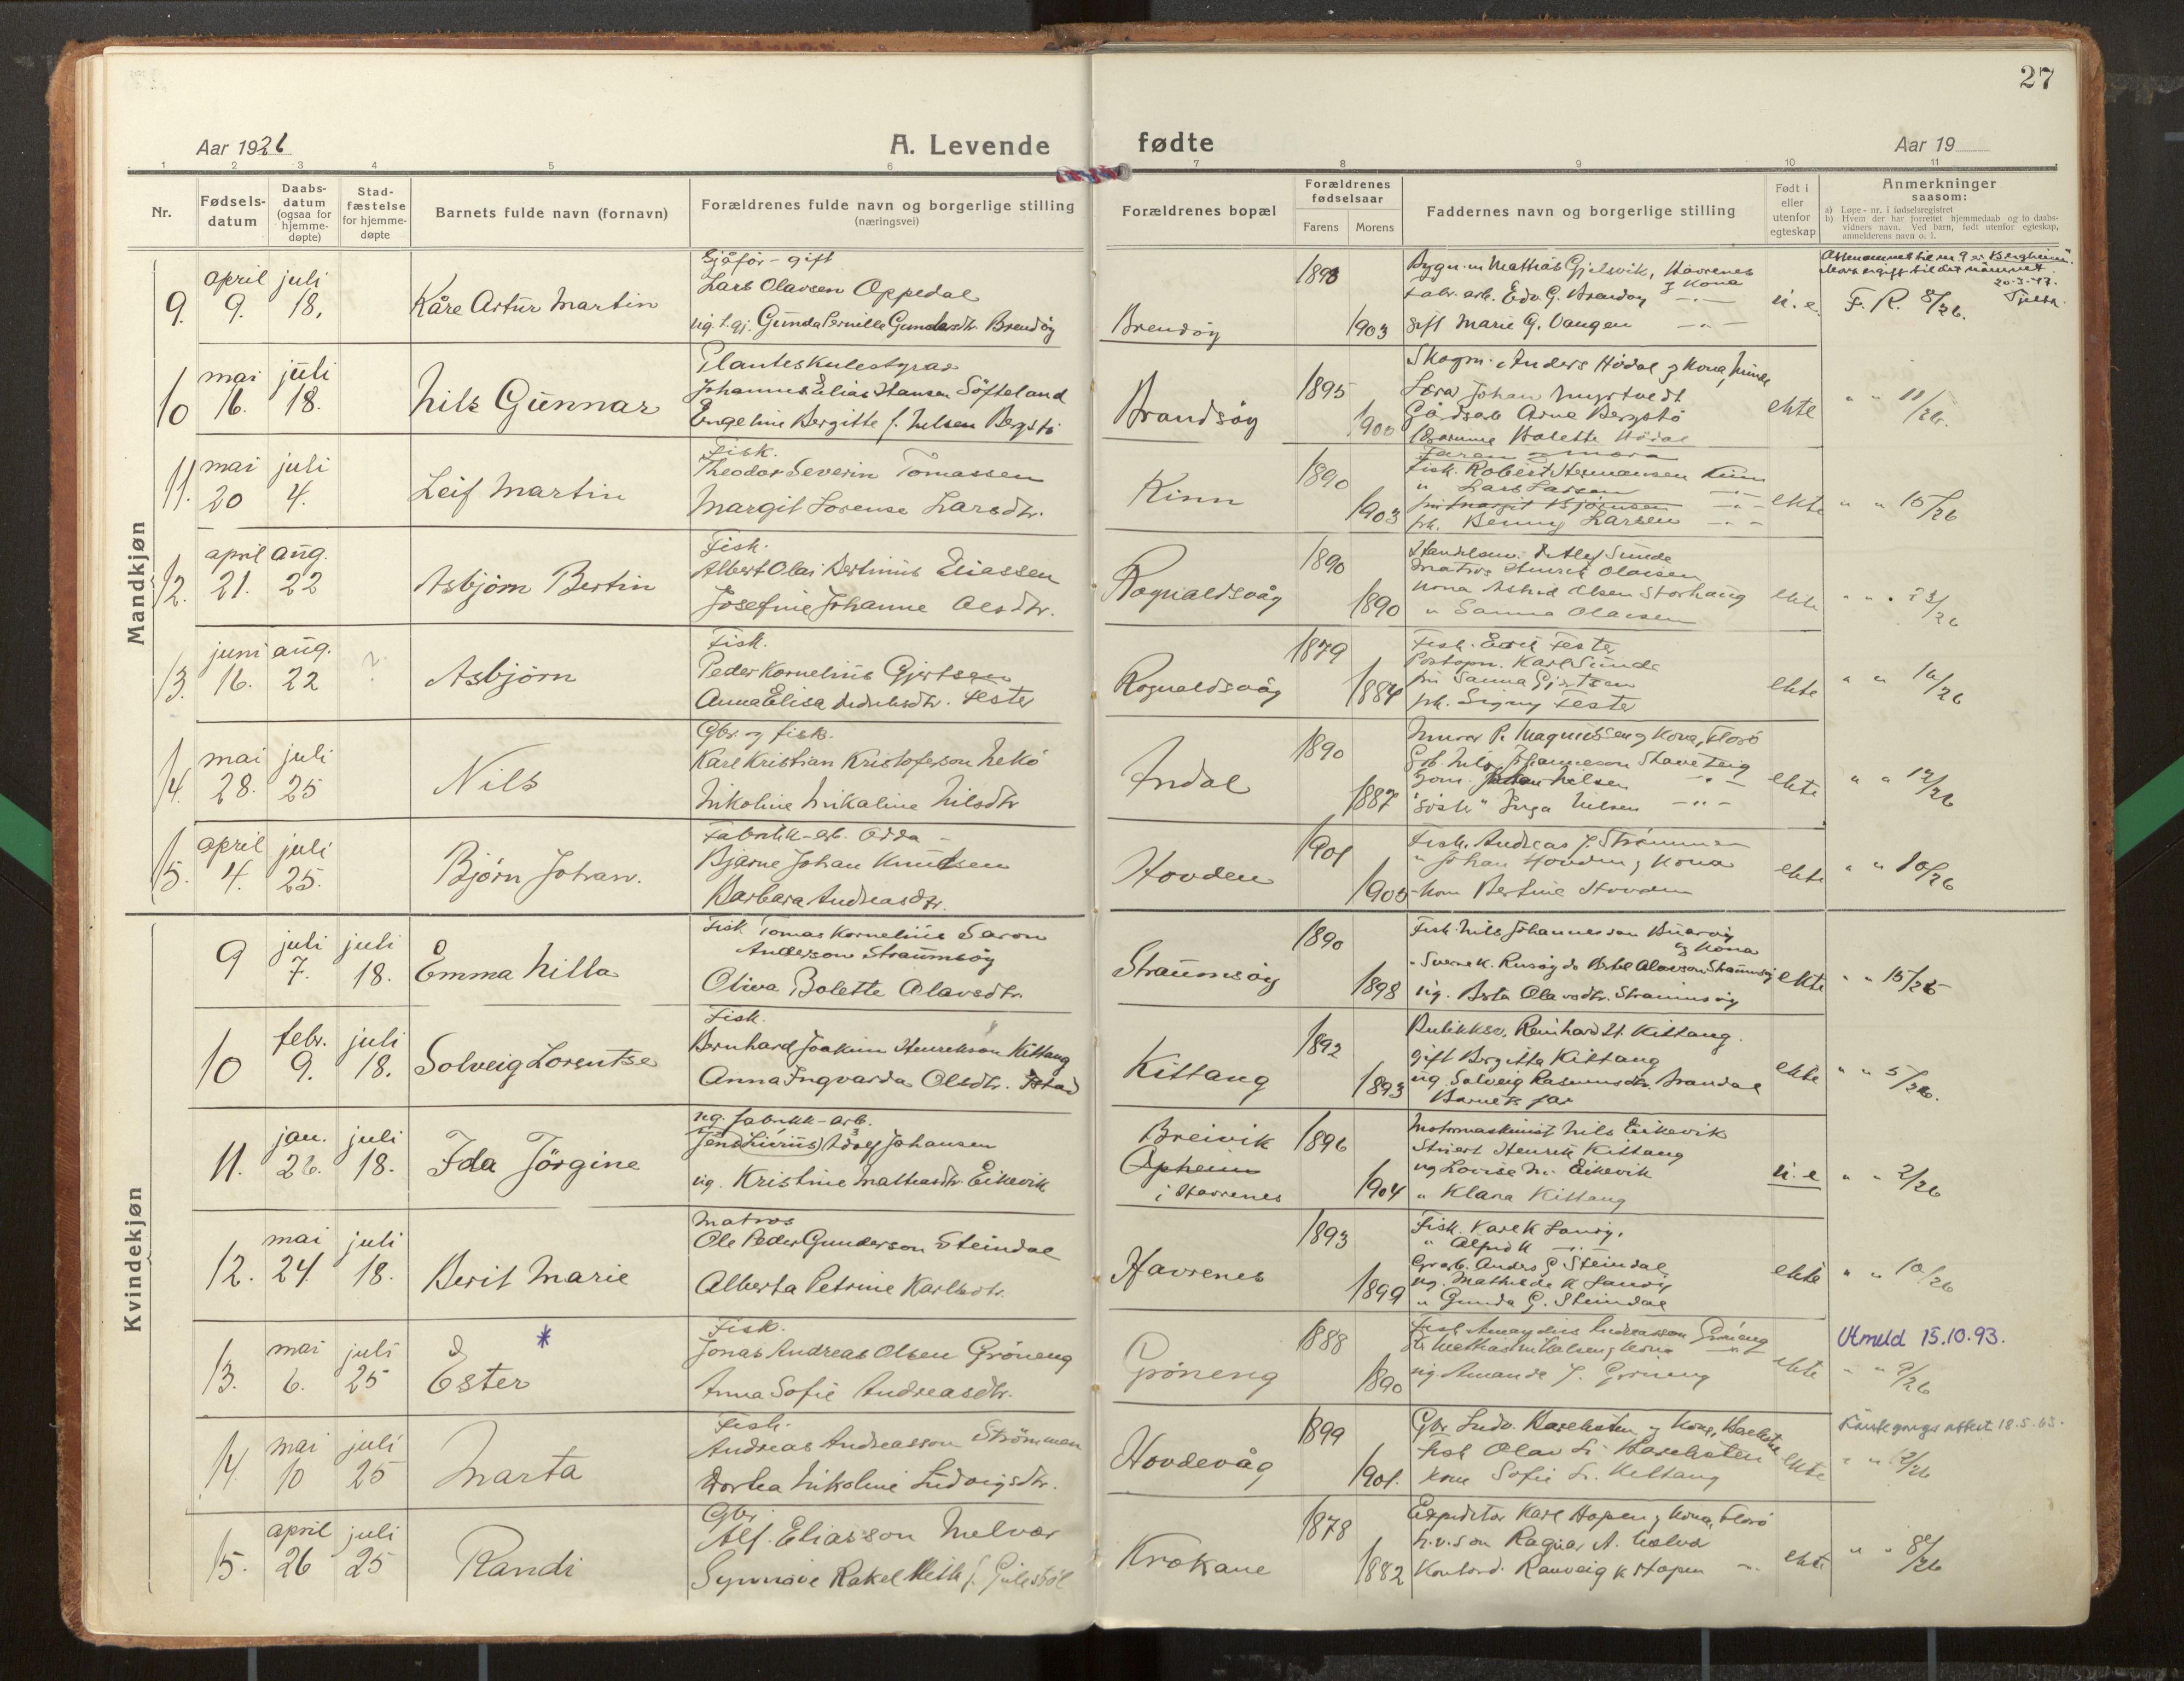 27
Aar 1926
A. Levende fødte
Aar 19
1 2 3 4 5 6 7 8 9 10 11
Nr.
Fødsels-
datum
Daabs-
datum
(ogsaa for
hjemme-
døpte)
Stad-
fæstelse
for hjemme-
døpte
Barnets fulde navn (fornavn)
Forældrenes fulde navn og borgerlige stilling
(næringsvei)
Forældrenes bopæl
Forældrenes
fødselsaar
Farens Morens
Faddernes navn og borgerlige stilling
Født i
eller
utenfor
egteskap
Anmerkninger
saasom:
a) Løpe-nr. i fødselsregistret
b) Hvem der har forrettet hjemmedaab og to daabs-
vidners navn. Ved barn, født utenfor egteskap,
anmelderens navn o. l.
Mandkjøn
9. april 9. juli 18. Kåre Artur Martin
Sjåfør - gift
Lars Olavsen Oppedal
ug. t.gj. Gunda Pernille Gundersdtr. Brendøy
Brendøy
1893
1903
Bygn.m Mathias Gjelsvik, Havrenes
g kona
Fabr. arb. Edv. G. Brendøy
gift Marie G. Vangen
u.e.
20-3-47.
F. R. 8/26.
10 mai 16. juli 18. Nils Gunnar
Planteskulestyrar
Johannes Elias Hansen Söfteland
Engeline Bergitte f. Nilsen Bergstø
Brandsøy
1895
1900
Skogm. Anders Hødal g kona,
Lærar Johan Myrtvedt
Gårdsarb Arne Bergstø
Halette Hødal
ekte
" " 11/26.
11. mai 20 juli 4. Leif Martin
Fisk.
Theodor Severin Tomassen
Margit Lorense Larsdtr.
Kinn
1890
1903
Faren g mora
Fisk. Robert Hermansen Kinn
" Lars Larsen
frk. Benny Larsen
ekte
" " 10/26
12. april 21. aug. 22 Asbjørn Bertin
Fisk.
Albert Olai Bertinus Eliassen
Josefine Johanne Olsdtr.
Rognaldsvåg
1890
1890
Handelsm. Sunde
Matros Henrik Olaisen
Kona Astrid Olsen Storhaug
" Sanna Olaisen
ekte
" " 23/26
13. juni 16. aug. 22 ? Asbjörn
Fisk.
Peder Kornelius Gjertsen
Anna Elisa Fester
Rognaldsvåg
1879
1884
Fisk. Erik Fester
Postopn. Karl Sunde
fru Sanna Gjertsen
frk. Signy Fester
ekte
" " 16/26
14. mai 28. juli 25 Nils
Gbr. og fisk.
Karl Kristian Kristoferson Nekö
Nikoline Nikaline Nilsdtr
Indal
1890
1887
Murar P. Magnussen g kona, Florö
Gbr. Nils Johanneson Stavøteig
Nilsen
Inga Nilsen
ekte
" " 12/26
15. april 4. juli 25. Bjørn Johan.
Fabrikk-arb. Odda
Bjarne Johan Knudsen
Barbara Andreasdtr.
Hovden
1901
1905
Fisk. Andreas J. Strömmen
" Johan Hovden g kona
Kona Bertine Hovden
ekte
" " 10/26
Kvindekjøn
9 juli 7. juli 18. Emma Nilla
Fisk Tomas Kornelius Saron
Anderson Straumsöy
Oliva Bolette Olavsdtr.
Straumsöy
1890
1898
Fisk. Nils Johannesson
g kona
ug. Berta Olavsdtr. Straumsöy
ekte
" " 15/26
10 febr. 9. juli 18. Solveig Lorentse
Fisk.
Bernhard Joakim Henrikson Kittang
Anna Ingvarda Olsdtr.
Kittang
1892
1893
Butikksv. Reinhard H. Kittang.
gift Birgitta Kittang
ug. Solveig Rasmusdtr.
Barnets far
ekte
" " 5/26.
11. jan. 26. juli 18. Ida Jörgine
ug. fabrikk-arb.
Jens (Livius) Adolf Johansen
ug. Kristine Mathiasdtr. Eikevik
Breivik
Opheim
i Havrenes
1896
1904
Motormaskinist Nils Eikevik
Stuert Henrik Kittang
ug Lovise M. Eikevik
" Klara Kittang
u.e
" " 2/26
12. mai 24. juli 18. Berit Marie
Matros
Ole Peder Gunderson Steindal
Alberta Petrine Karlsdtr.
Havrenes
1893
1899
Fisk. Karl K Landøy.
" Alfred K
Grarb. Anders G Steindal
ug. Mathilde K Landøy
" Gunda G. Steindal
ekte
" " 10/26
13. mai 6. juli 25 Ester *
Fisk.
Jonas Andreas Olsen Gröneng
Anna Sofie Andreasdtr.
Gröneng
1888
1890
Fisk. Andreassen Gröneng
ug. Amanda J. Gröneng
ekte
Utmeld 15.10.93.
" " 9/26
14. mai 10 juli 25 Marta
Fisk.
Andreas Andreasson Strömmen
Dortea Nikoline Ludvigsdtr.
Hovdevåg
1899
1901.
Gbr. Ludv. Bareksten g kona, Barekstad
Fisk Olav L. Bareksten
kona Sofie L. Kittang
ekte
18.5.63.
" " 12/26
15. april 26 juli 25 Randi
Gbr
Alf. Eliasson Melvær
Synnöve Rakel f. Gulestöl
Krokane
1878
1882
Expeditör Karl Hopen g kona, Florö
Ragnar A. Melvær
Kontord. Ranveig K Hopen
ekte
" " 8/26